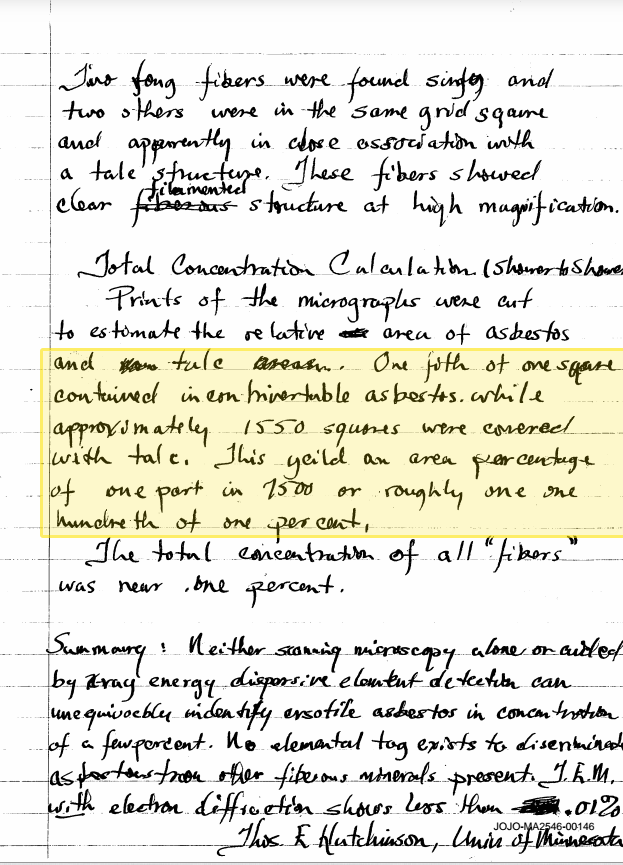 Two long fibers were found singly and
two others were in the same grid square
and apparently in close association with
a talc structure. These fibers showed
filamented
clear fiberous structure at high magnification.
Total Concentration Calculation (Shower to Shower
Prints of the micrographs were cut
to estimate the relative area of asbestos
and talc. One fith of one square
contained incontrivertable asbestos. while
approximately 1550 squares were covered
with talc. This yeild an area percentage
of one part in 7500 or roughly one one
hundreth of one percent,
The total concentration of all "fibers"
was near .one percent.
Summary : Neither scanning microscopy alone or aided
by Xray energy dispersive element detection can
unequivocbly indentify crsotile asbestos in concentration
of a few percent. No elemental tag exists to discriminate
from other fiberous minerals present. T.E.M.
with electron diffraction shows less than .01%
JOJO-MA2546-00146
Thos E Hutchinson, Univ of Minnesota